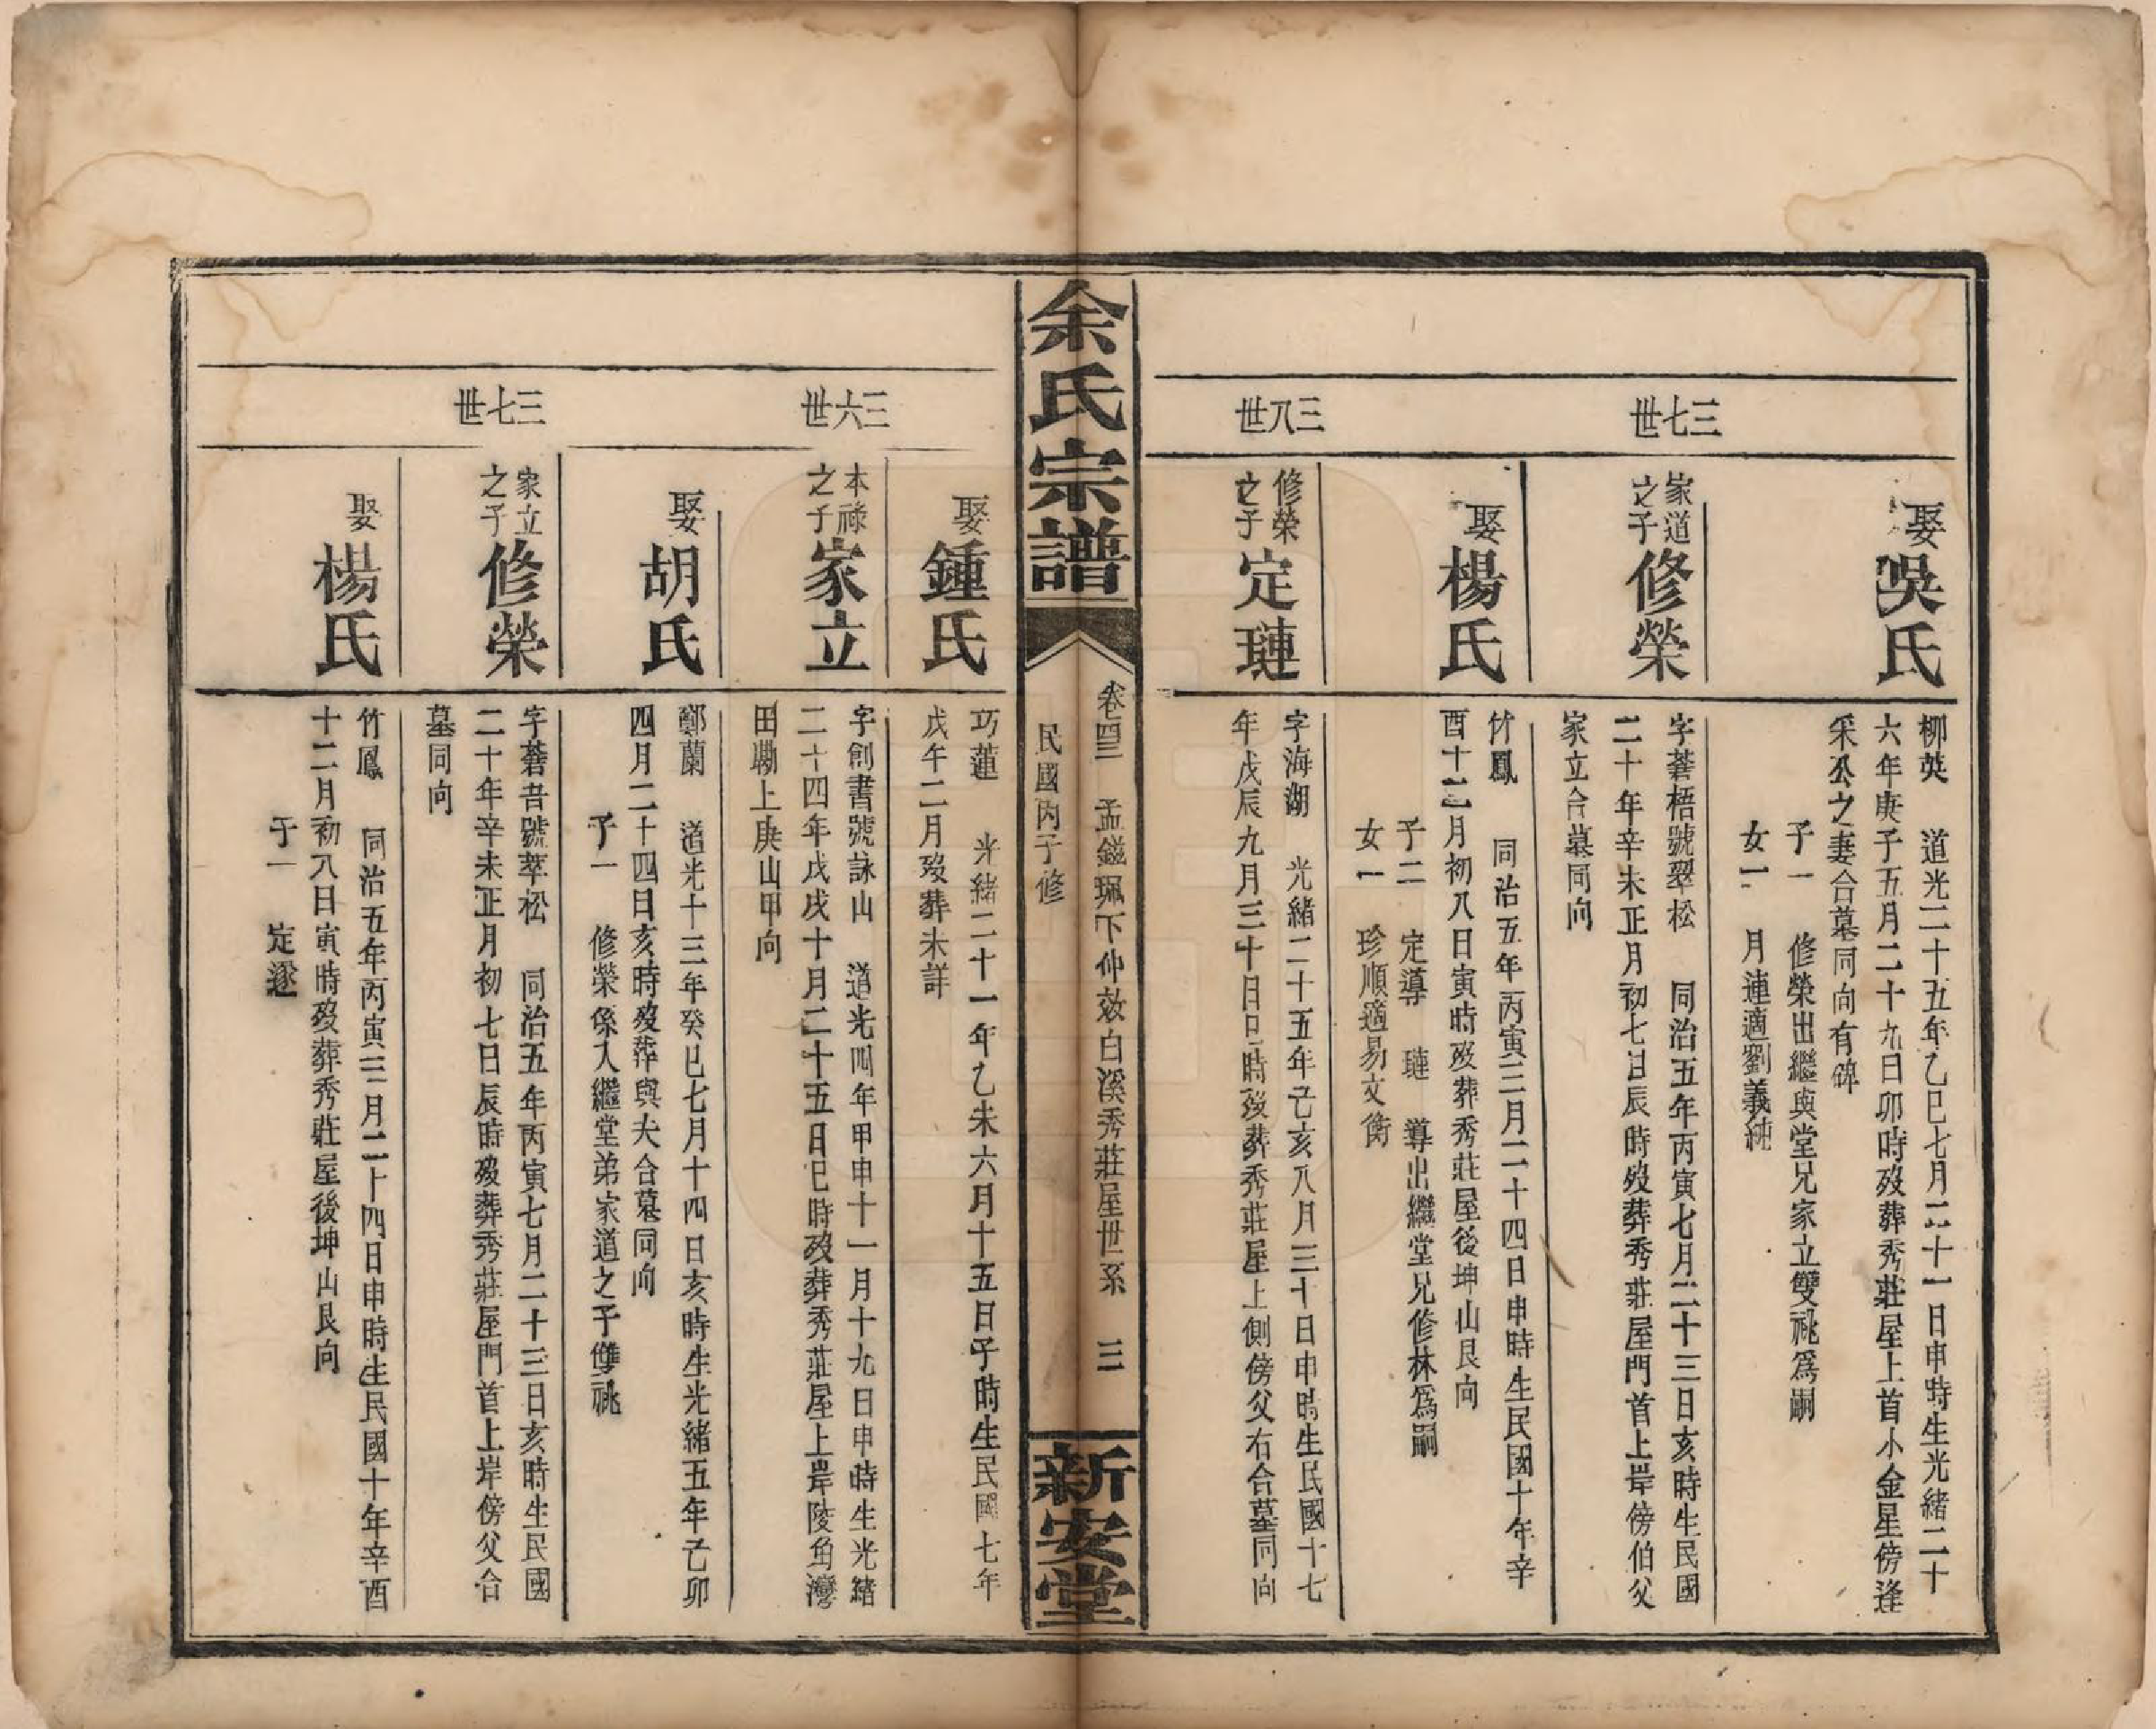 三七世
娶吳氏
柳英　道光二十五年乙巳七月二十一日申時生光緒二十
六年庚子五月二十九日卯時歿葬秀莊屋上首小金星傍逢
采公之妻合墓同向有碑
子一　修榮出繼與堂兄家立雙祧爲嗣
女一　月連適劉義純
家道之子修榮
字蒼梧號翠松　同治五年丙寅七月二十三日亥時生民國
二十年辛未正月初七日辰時歿葬秀莊屋門首上岸傍伯父
家立合墓同向
娶楊氏
竹鳳　同治五年丙寅三月二十四日申時生民國十年辛
酉十二月初八日寅時歿葬秀莊屋後坤山艮向
子二　定導　璉　導出繼堂兄修林爲嗣
女一　珍順適易文衡
三八世
修榮之子定璉
字海湖　光緒二十五年己亥八月三十日申時生民國十七
年戊辰九月三十日巳時歿葬秀莊屋上側傍父右合墓同向
余氏宗譜
卷四三　孟鎰珮下仲效白溪秀莊屋世系　三
民國丙子修
新安堂
娶鍾氏
巧蓮　光緒二十一年乙未六月十五日子時生民國七年
戊午二月歿葬未詳
三六世
本祿之子家立
字創書號詠山　道光四年甲申十一月十九日申時生光緒
二十四年戊戌十月二十五日巳時歿葬秀莊屋上岸陵角灣
田墈上庚山甲向
娶胡氏
鄭蘭　道光十三年癸巳七月十四日亥時生光緒五年己卯
四月二十四日亥時歿葬與夫合墓同向
子一　修榮係入繼堂弟家道之子雙祧
三七世
家立之子修榮
字蒼吾號翠松　同治五年丙寅七月二十三日亥時生民國
二十年辛未正月初七日辰時歿葬秀莊屋門首上岸傍父合
墓同向
娶楊氏
竹鳳　同治五年丙寅三月二十四日申時生民國十年辛酉
十二月初八日寅時歿葬秀莊屋後坤山艮向
子一　定遂